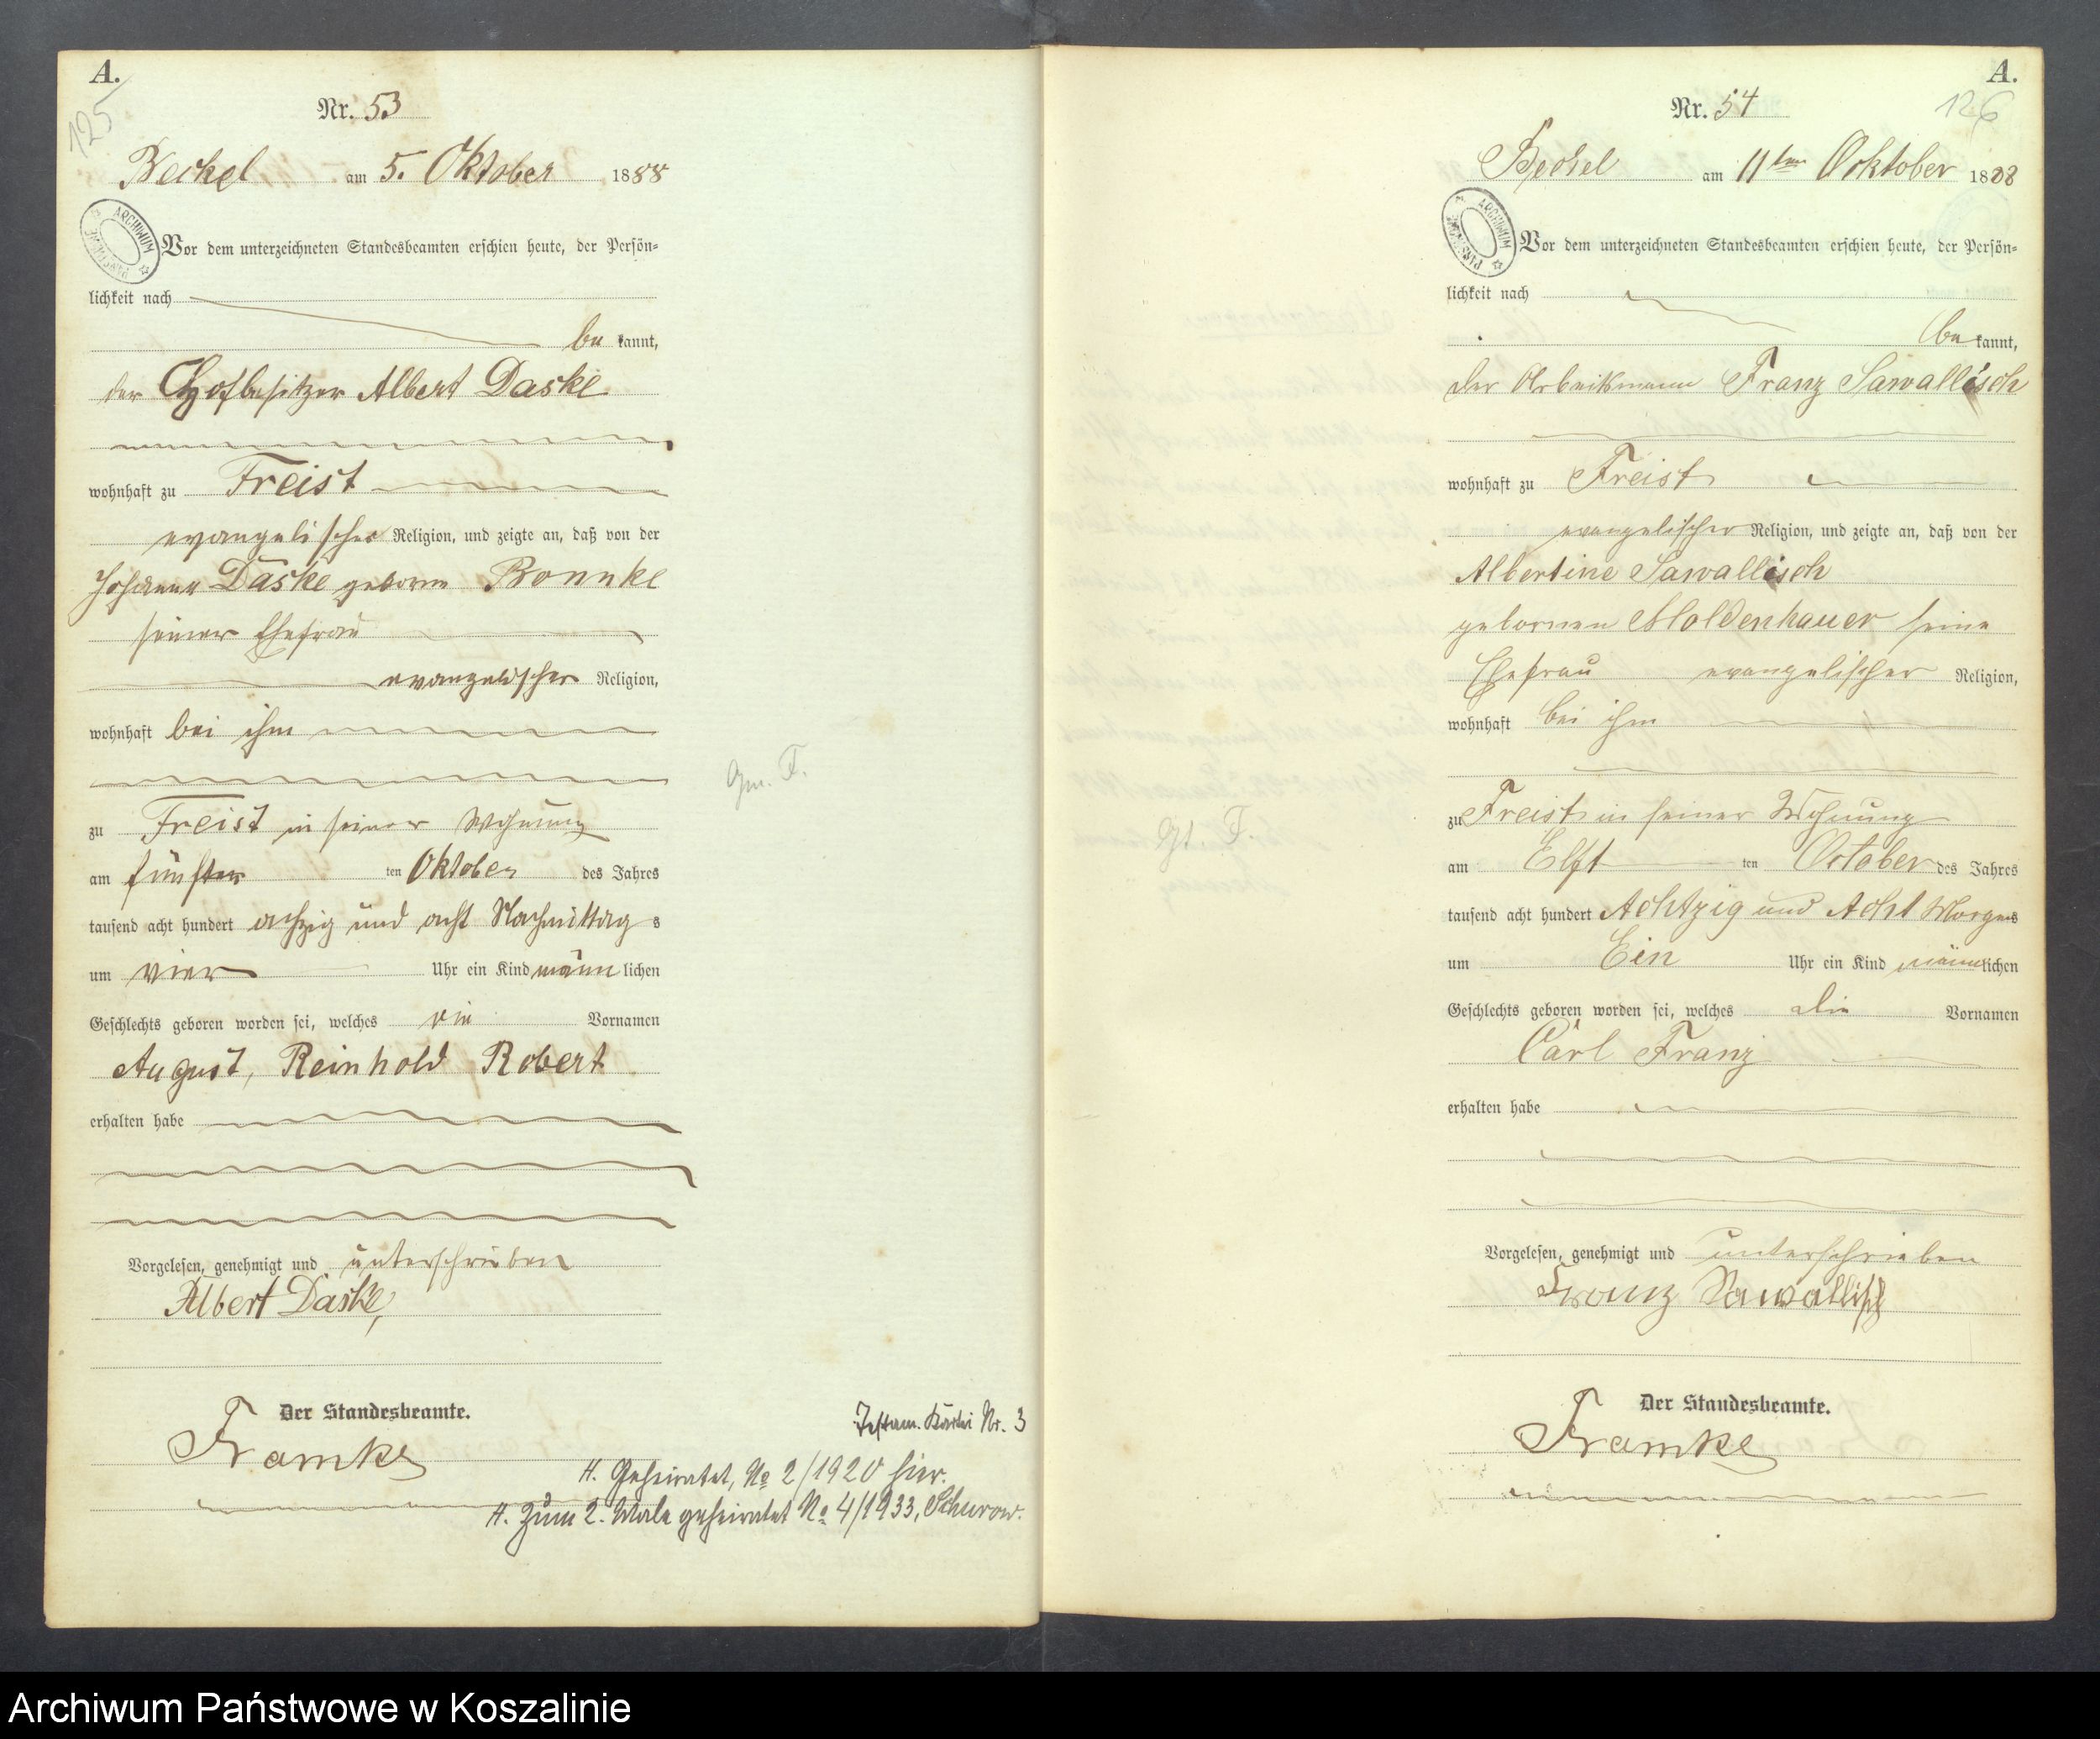 A.
125
Nr. 53
Beckel am 5. Oktober 1888
ARCHIWUM PAŃSTWOWE
Vor dem unterzeichneten Standesbeamten erschien heute, der Persön-
lichkeit nach
be kannt,
der Hofbesitzer Albert Daske
wohnhaft zu Freist
evangelischer Religion, und zeigte an, daß von der
Johanne Daske geborne Bonnke
seiner Ehefrau
evangelischer Religion,
wohnhaft bei ihm
zu Freist in seiner Wohnung
am fünften ten Oktober des Jahres
tausend acht hundert achzig und acht Nachmittag s
um vier Uhr ein Kind männ lichen
Geschlechts geboren worden sei, welches die Vornamen
August, Reinhold Robert
erhalten habe
Vorgelesen, genehmigt und unterschrieben
Albert Daske,
Der Standesbeamte.
Framke
Gm. F.
Testam. Kartei Nr. 3
H. Geheiratet, No 2/1920 hier.
H. Zum 2. Male geheiratet No 4/1933, Schurow.
A.
126
Nr. 54
Beckel am 11ten Ocktober 1888
ARCHIWUM PAŃSTWOWE
Vor dem unterzeichneten Standesbeamten erschien heute, der Persön-
lichkeit nach
be kannt,
der Arbeitsmann Franz Sawallisch
wohnhaft zu Freist
evangelischer Religion, und zeigte an, daß von der
Albertine Sawallisch
gebornen Moldenhauer seine
Ehefrau evangelischer Religion,
wohnhaft bei ihm
zu Freist in seiner Wohnung
am Elft ten October des Jahres
tausend acht hundert Achtzig und Acht Morgens
um Ein Uhr ein Kind männlichen
Geschlechts geboren worden sei, welches die Vornamen
Carl Franz
erhalten habe
Vorgelesen, genehmigt und unterschrieben
Franz Sawallisch
Der Standesbeamte.
Framke
Gt. F.
Archiwum Państwowe w Koszalinie